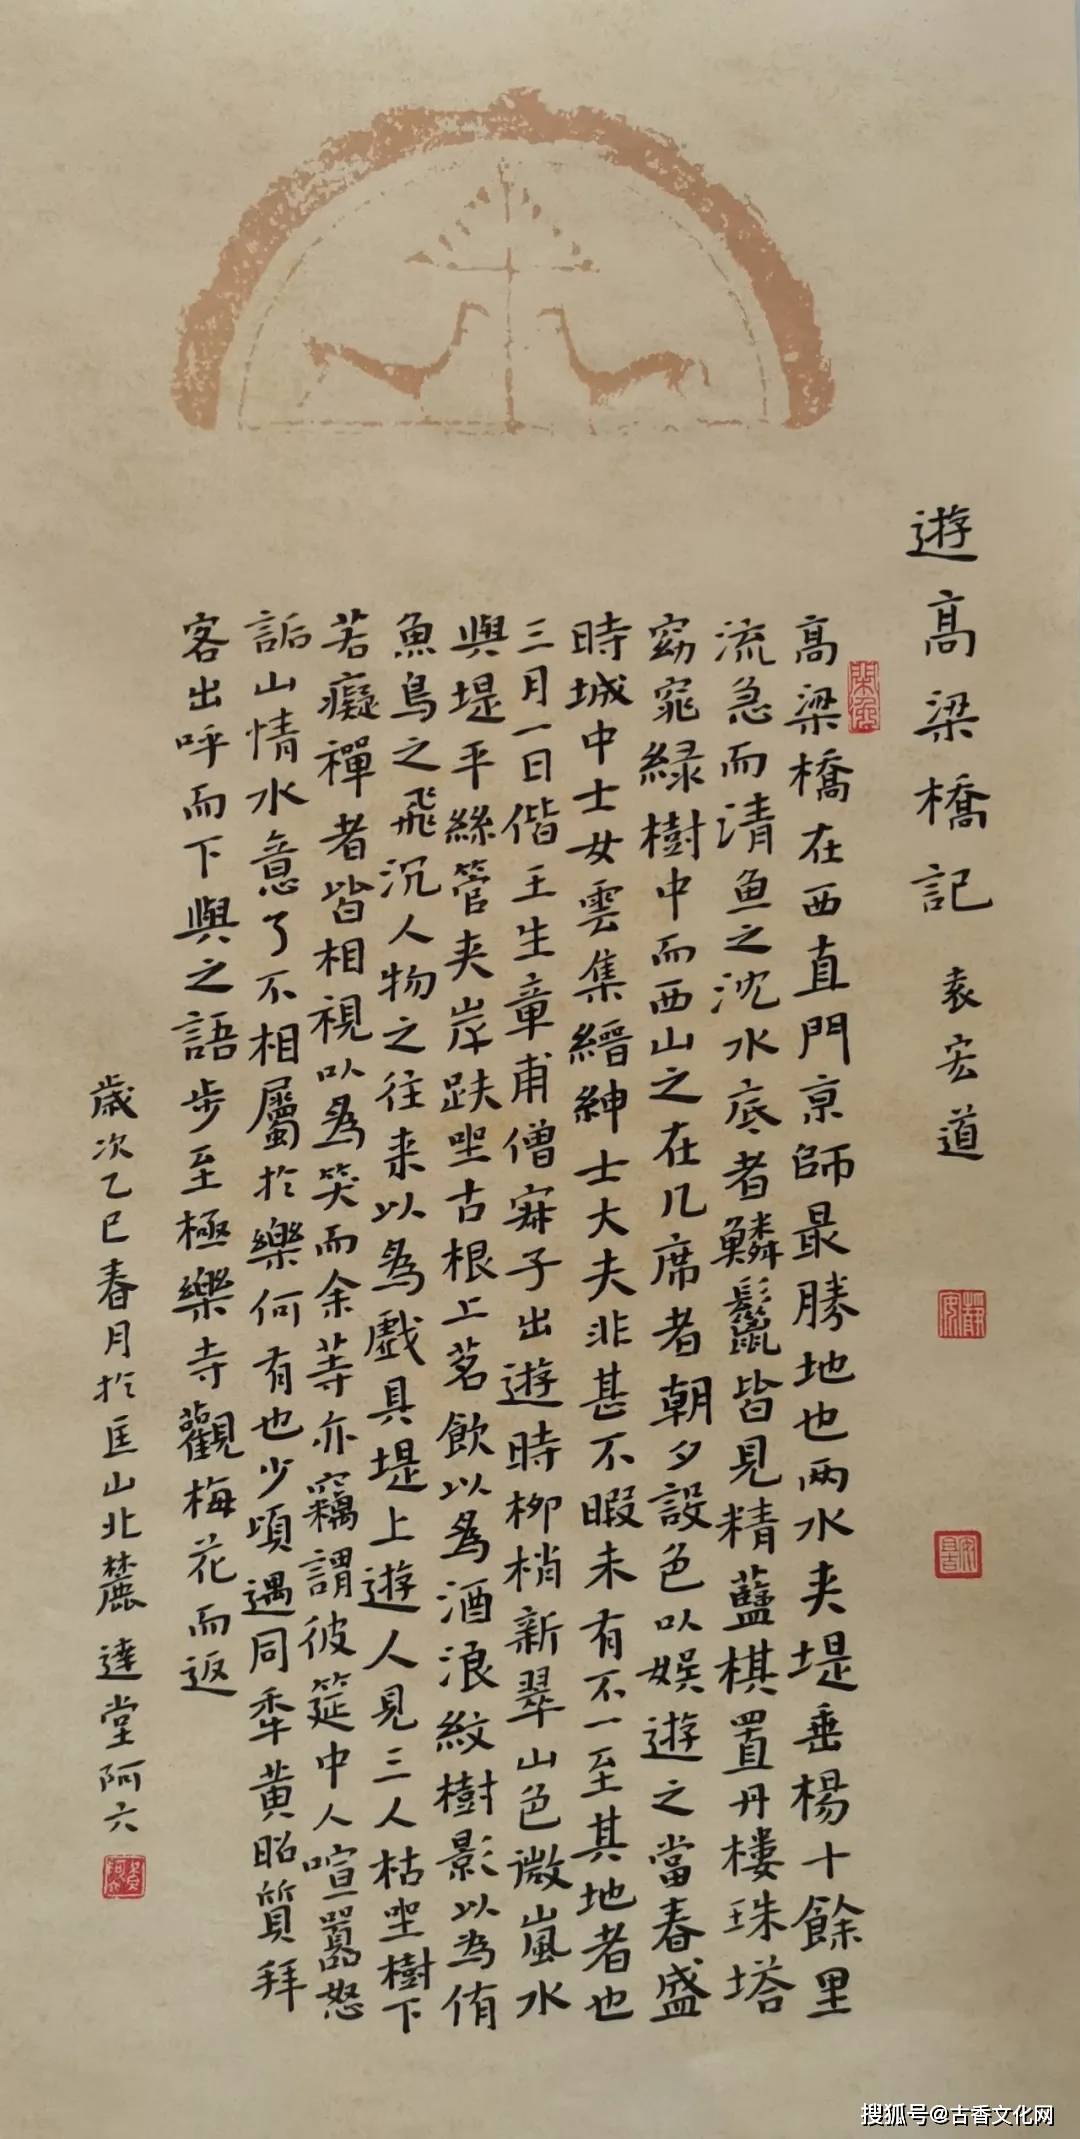 遊高梁橋記 袁宏道
高梁橋在西直門京師最勝地也兩水夾堤垂楊十餘里
流急而清魚之沈水底者鱗鬣皆見精藍棋置丹樓珠塔
窈窕綠樹中而西山之在几席者朝夕設色以娛遊之當春盛
時城中士女雲集縉紳士大夫非甚不暇未有不一至其地者也
三月一日偕王生章甫僧寂子出遊時柳梢新翠山色微嵐水
與堤平絲管夾岸趺坐古根上茗飲以為酒浪紋樹影以為侑
魚鳥之飛沉人物之往来以為戲具堤上遊人見三人枯坐樹下
若癡禪者皆相視以為笑而余等亦竊謂彼筵中人喧囂怒
詬山情水意了不相屬於樂何有也少頃遇同年黃昭質拜
客出呼而下與之語步至極樂寺觀梅花而返
歲次乙巳春月於匡山北麓達堂阿六
搜狐号@古香文化网